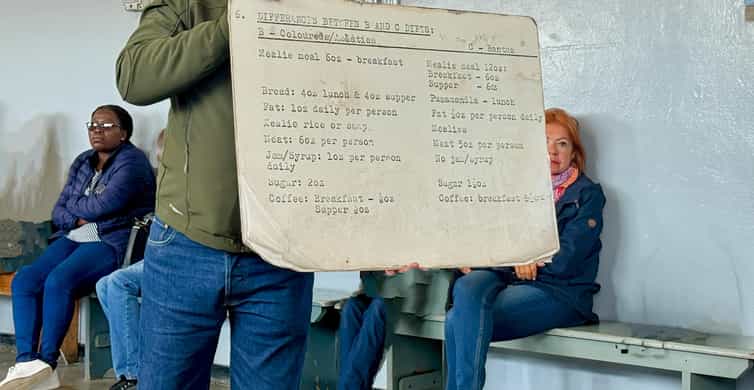 6. DIFFERENCES BETWEEN B AND C DIETS:
B = Coloureds/Asiatics
C - Bantus
Mealie meal 6oz - breakfast
Mealie meal 12oz:
Breakfast - 6oz
Supper - 6oz
Bread: 4oz lunch & 4oz supper
Puzamandla - lunch
Fat: 1oz daily per person
Fat ½oz per person daily
Mealie rice or samp.
Mealies
Meat: 6oz per person
Meat 5oz per person
Jam/Syrup: 1oz per person
daily
No jam/syrup
Sugar: 2oz
Sugar 1½oz
Coffee: Breakfast -
Supper
Coffee: breakfast